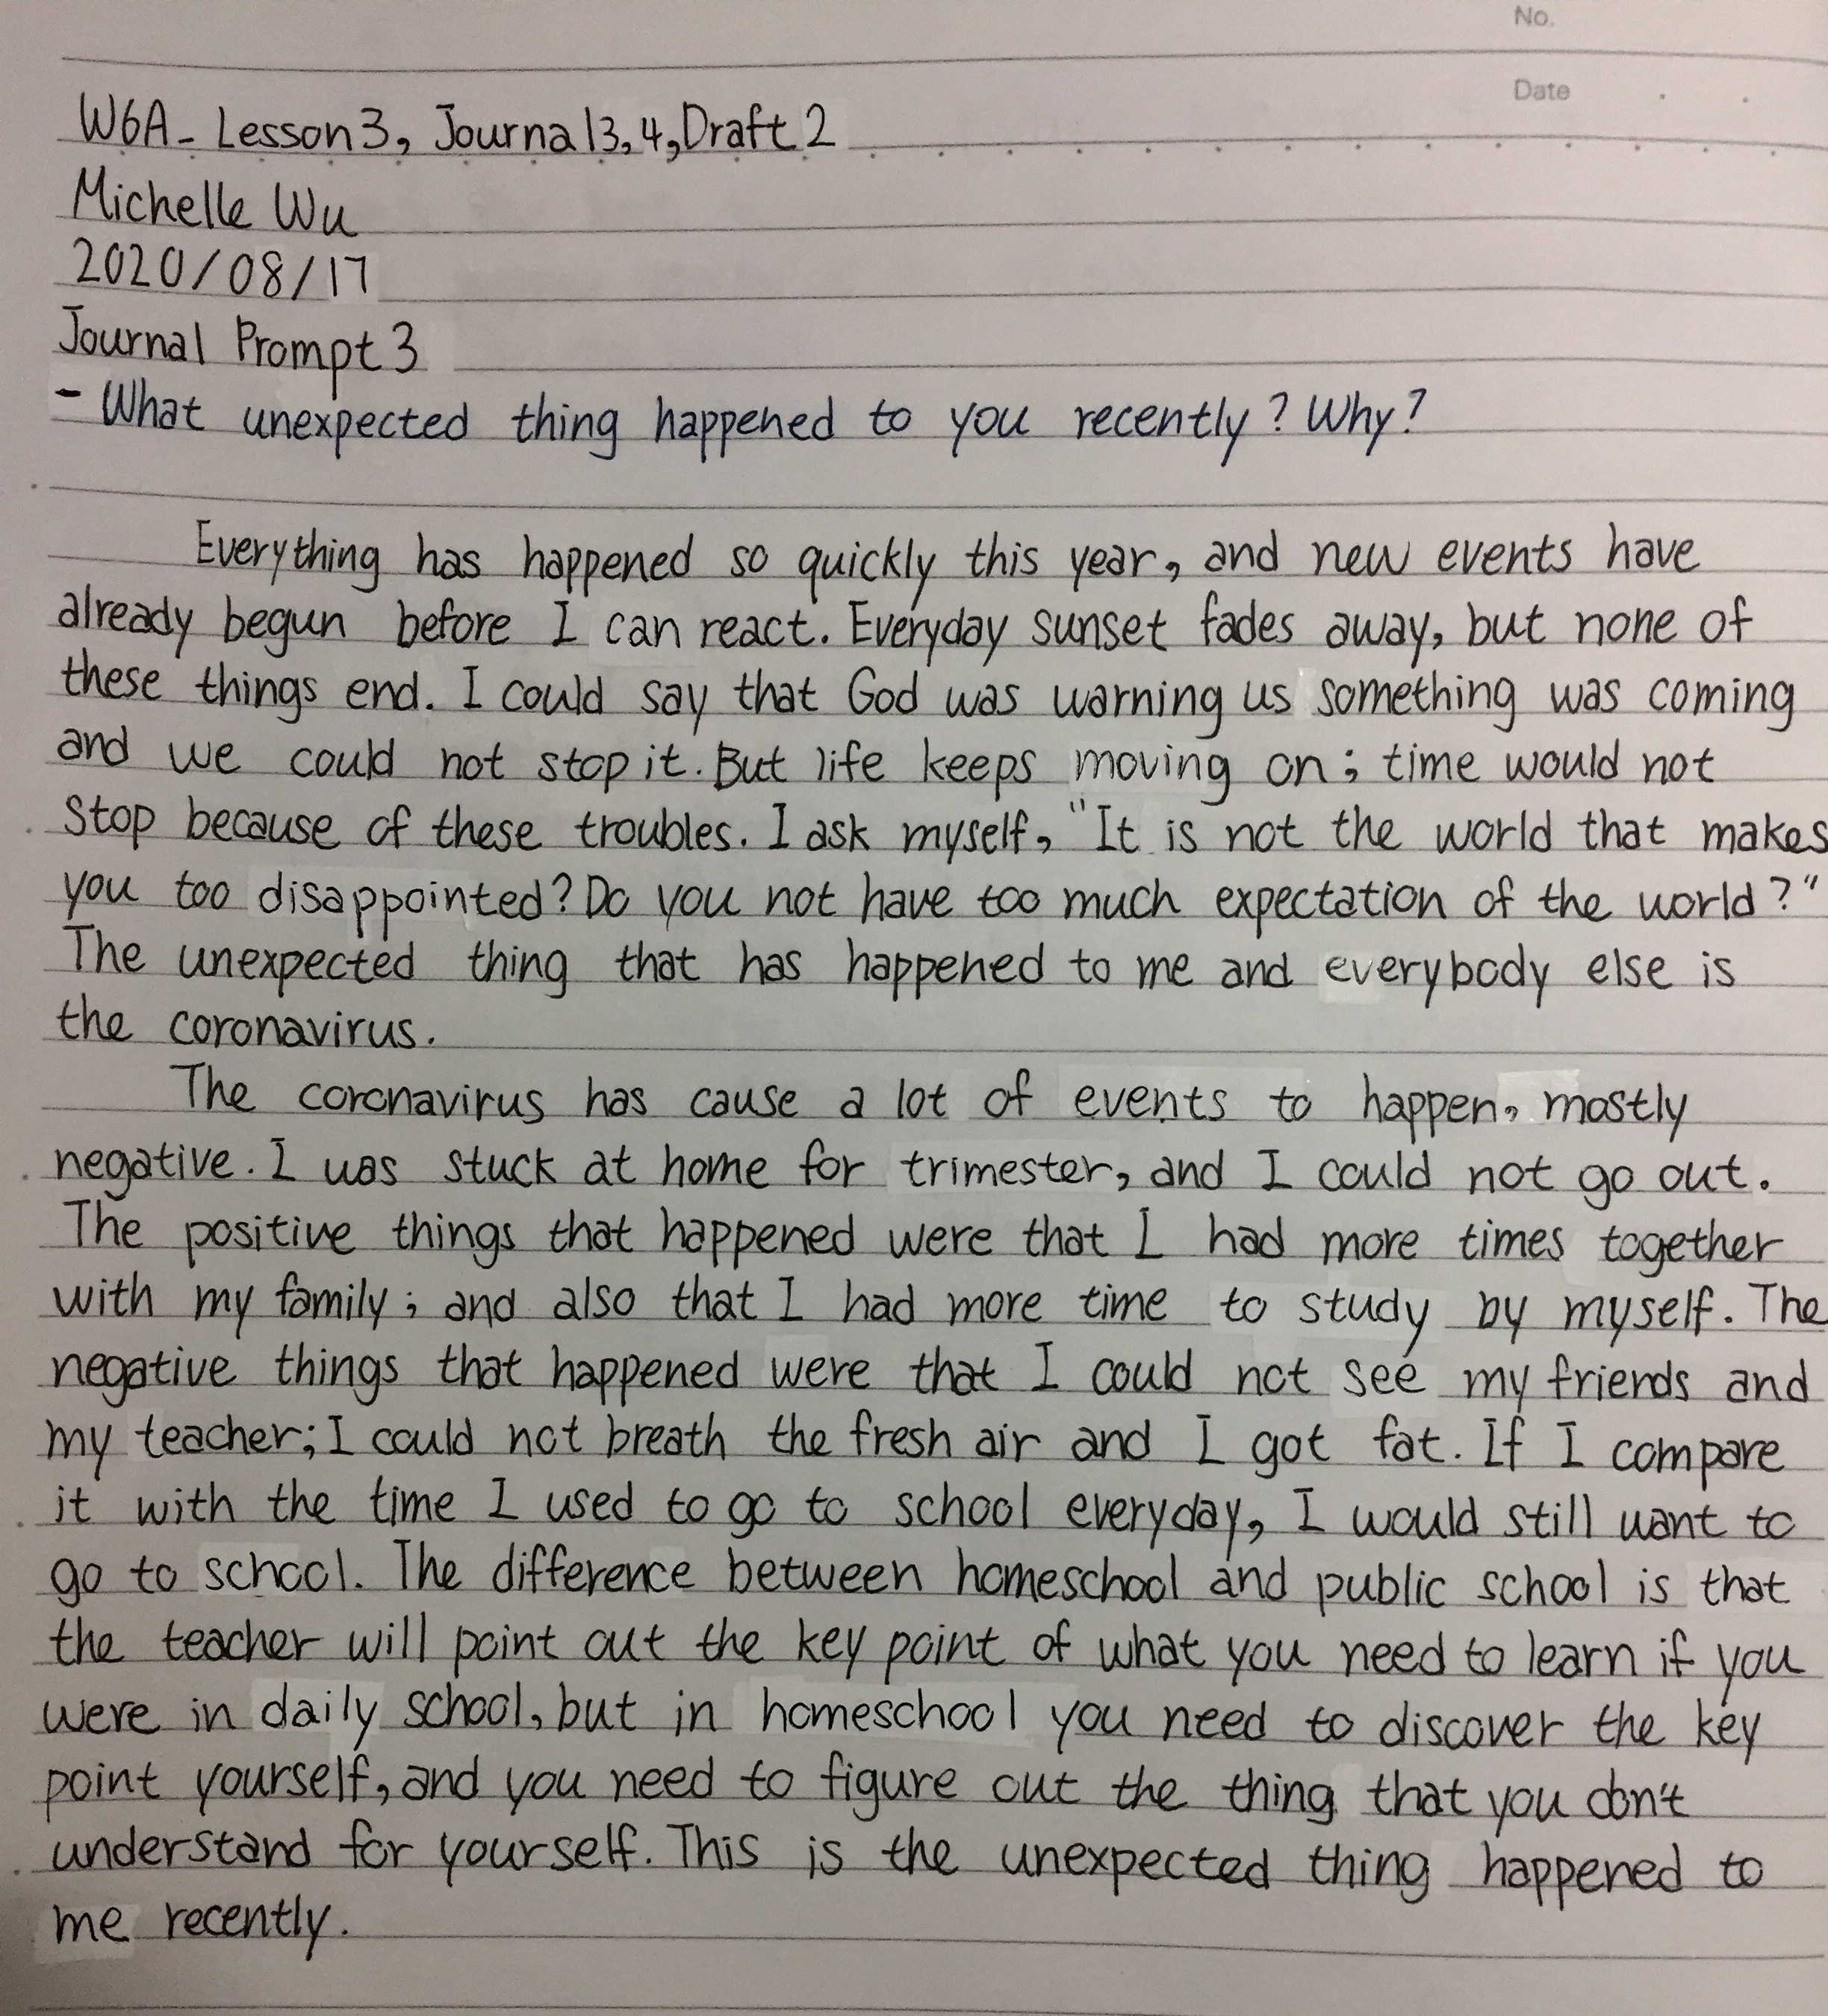 No.
Date
W6A - Lesson 3, Journal 3, 4, Draft 2
Michelle Wu
2020/08/17
Journal Prompt 3
- What unexpected thing happened to you recently? Why?
Everything has happened so quickly this year, and new events have
already begun before I can react. Everyday sunset fades away, but none of
these things end. I could say that God was warning us something was coming
and we could not stop it. But life keeps moving on; time would not
stop because of these troubles. I ask myself, "It is not the world that makes
you too disappointed? Do you not have too much expectation of the world?"
The unexpected thing that has happened to me and everybody else is
the coronavirus.
The coronavirus has cause a lot of events to happen, mostly
negative. I was stuck at home for trimester, and I could not go out.
The positive things that happened were that I had more times together
with my family; and also that I had more time to study by myself. The
negative things that happened were that I could not see my friends and
my teacher; I could not breath the fresh air and I got fat. If I compare
it with the time I used to go to school everyday, I would still want to
go to school. The difference between homeschool and public school is that
the teacher will point out the key point of what you need to learn if you
were in daily school, but in homeschool you need to discover the key
point yourself, and you need to figure out the thing that you don't
understand for yourself. This is the unexpected thing happened to
me recently.